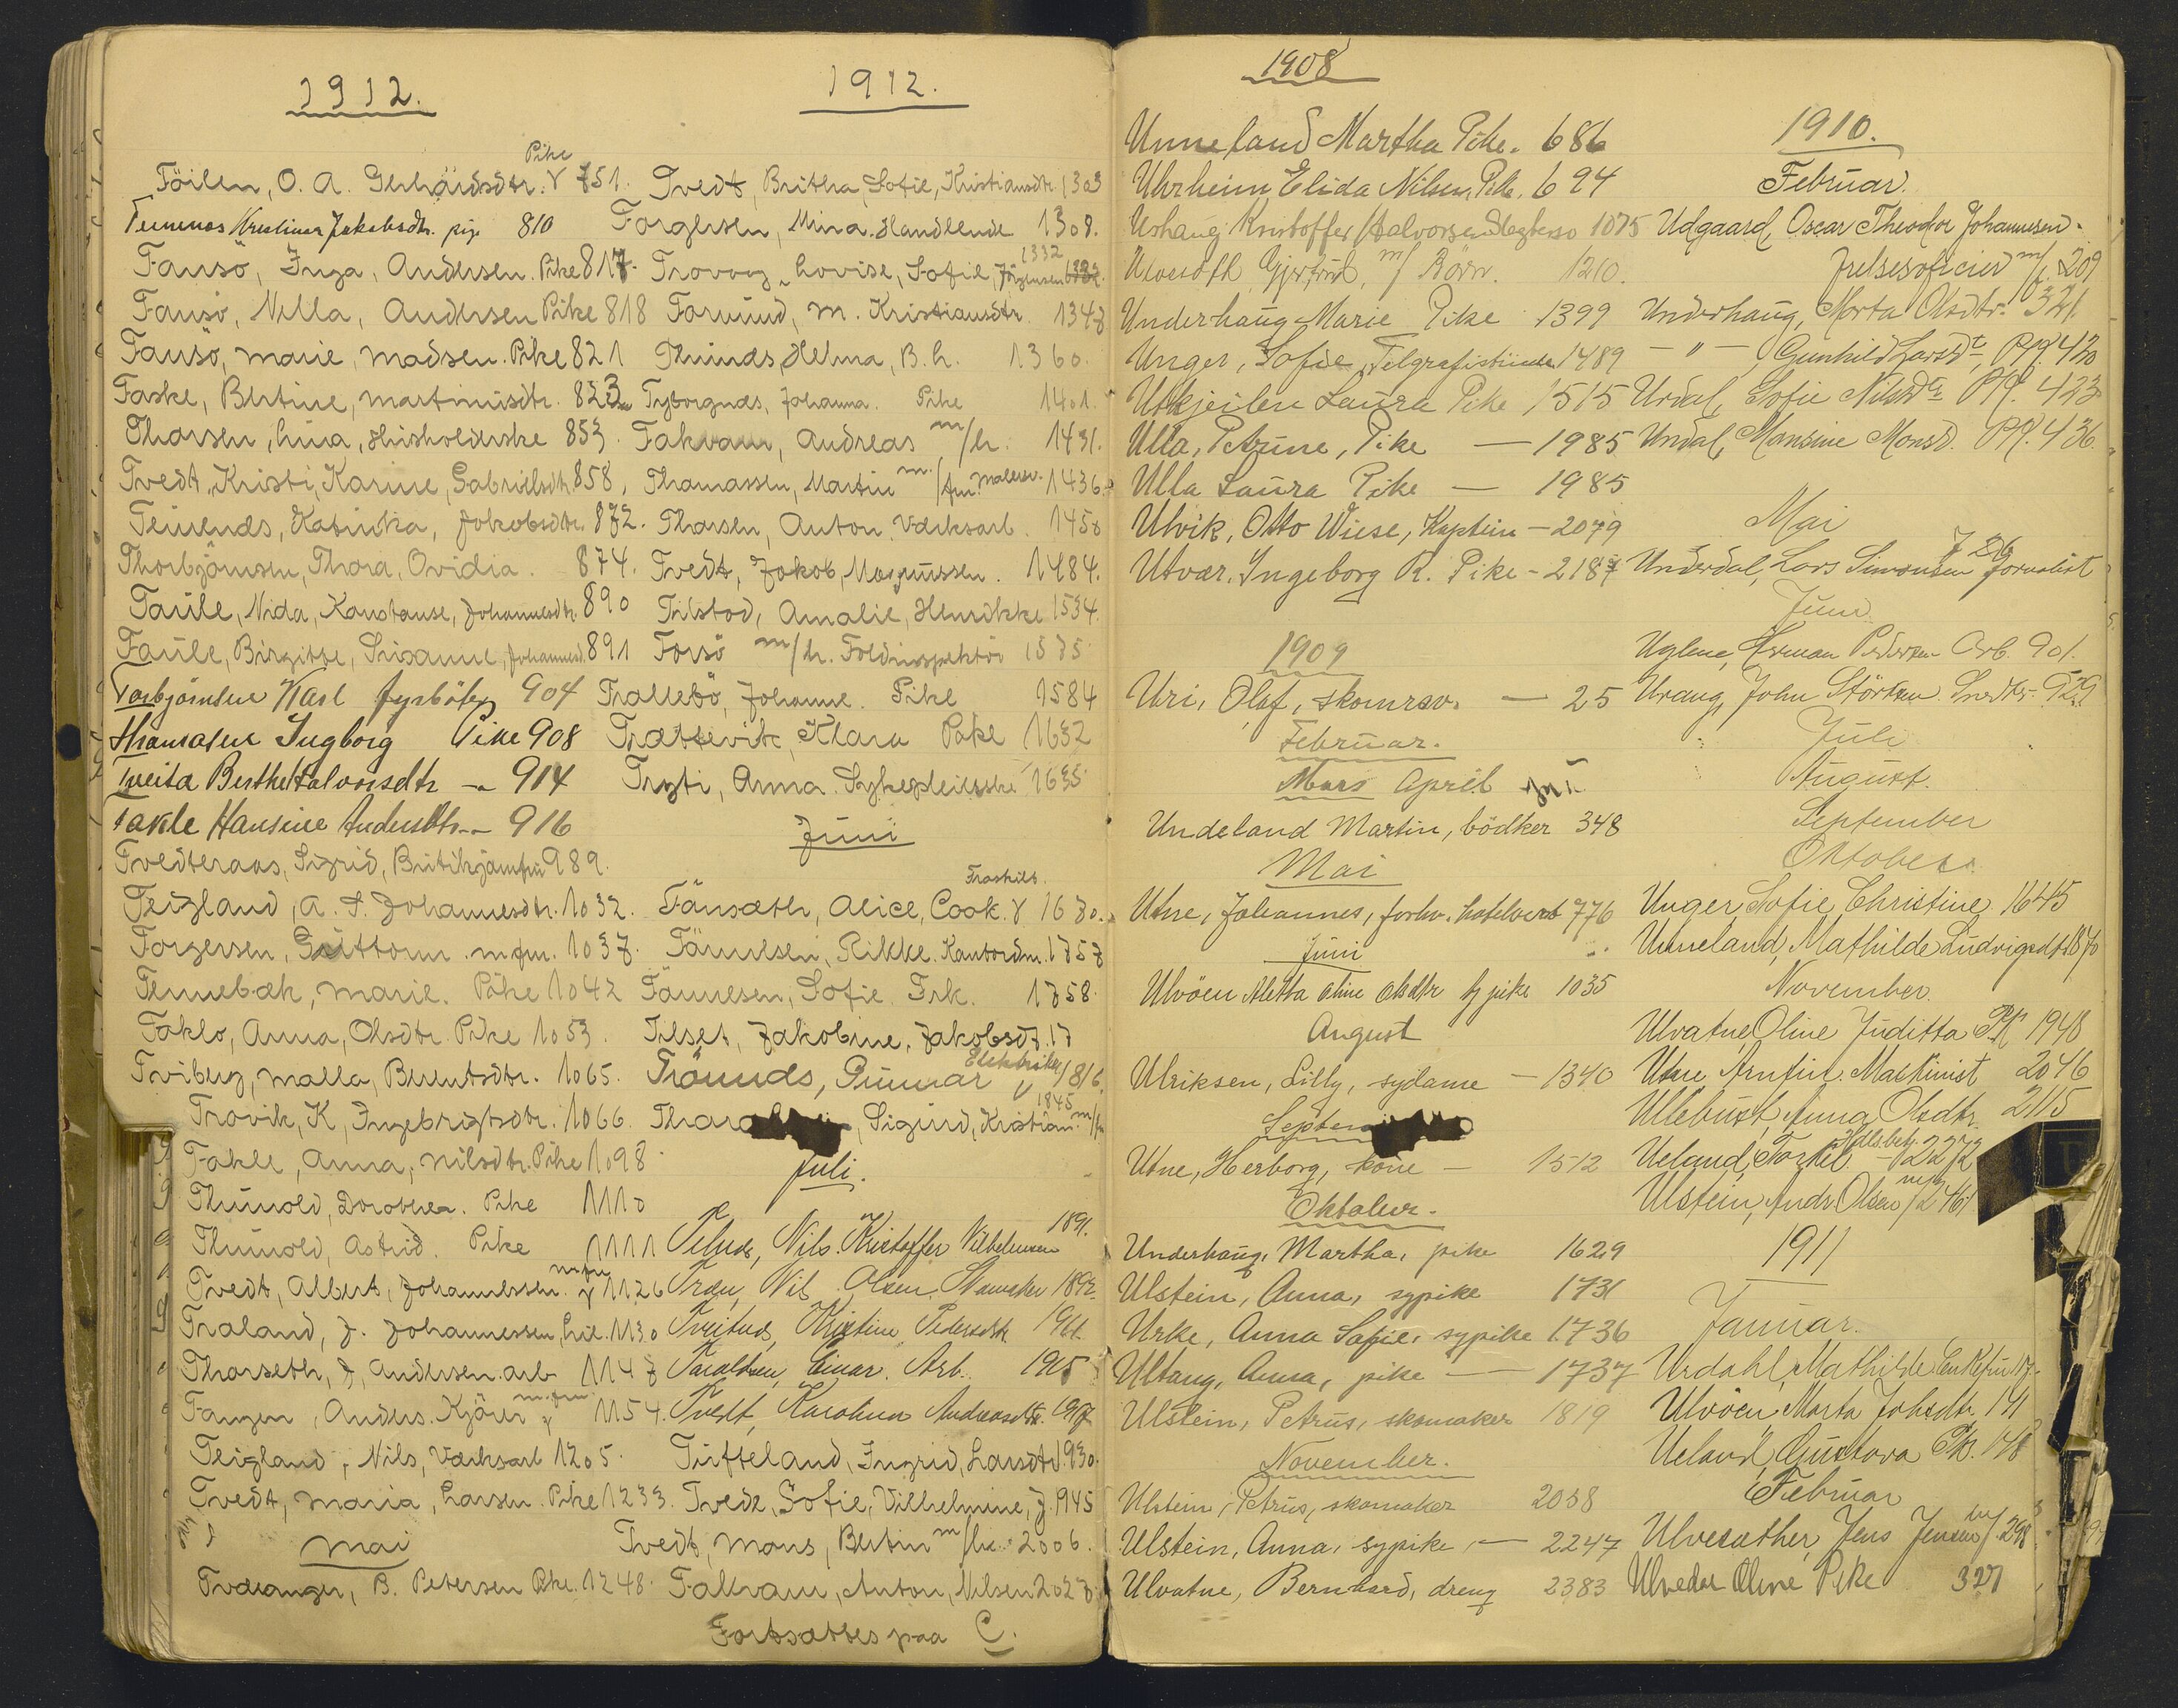 1912.
Pike
Töilen, O. A. Gerhardsdtr. 751.
Temenes Kristine Jakobsdtr. pige 810
Tansö, Inga, Andersen. Pike 817.
Tansö, Nella, Andersen Pike 818
Tansö, Marie, Madsen. Pike 821
Taske, Bertine, Martinusdtr. 823
Thorsen, Lina, Husholderske 853.
Tvedt, Kristi, Karine, Gabrielsdtr. 858.
Katinka, Jakobsdtr. 872.
Thorbjörnsen, Thora, Ovidia. 874.
Taule, Nida, Konstanse, Johannesdtr. 890
Taule, Birgitte, Susanne, Johannesd. 891
Torbjörnsen Karl fyrböter 904
Thomasen Ingborg Pike 908
Tveita Berthe Halvorsdtr - 914
Takle Hansine Andersdtr. - 916
Tvedteraas, Sigrid, 989.
Teigland, A. S. Johannesdtr. 1032.
Torgersen, Guttorm. m. fm. 1037.
Tennebæk, Marie. Pike 1042
Taklo, Anna, Olsdtr. Pike 1053.
Tviberg, Malla, Berentsdtr. 1065.
Trovik, K, Ingebrigtsdtr. 1066.
Takle, Anna, Nilsdtr. Pike 1098.
Thunold, Dorothea. Pike 1110
Thunold, Astrid. Pike 1111
Tvedt, Albert, Johannessen. m. fm 1126
Traland, J. Johannessen, 1130
Thorseth, J, Andersen. arb 1147
Tangen, Anders. Kjörer m. fm 1154.
Teigland, Nils, Værksarb 1205.
Tvedt, Maria, Larsen. Pike 1233.
Mai
B. Petersen Pike. 1248.
1912.
Tvedt, Britha, Sofie, Kristiansdtr. 1303
Torgersen, Mina. Handlende 1308.
1332
Trovaag, Lovise, Sofie, Jörgensen
Tormund, M. Kristiansdtr. 1347
Helma, B. h. 1360.
Johanna. Pike 1401.
Takvam, Andreas m/h. 1431.
Thomassen, Martin m/fm. malersv. 1436.
Thorsen, Anton. Værksarb. 1458
Tvedt, Jakob, Magnussen. 1484.
Tilstad, Amalie, Henrikke 1534.
Torsö m/h. Toldinspektör 1575
Trollebö, Johanne. Pike 1584
Trættevik, Klara Pike 1632
Tryti, Anna. Sykepleierske 1635
Juni
Froskild.
Tönsæth, Alice, Cook. 1670.
Tönnesen, Rikke. Kontordm. 1757
Tönnesen, Sofie Frk. 1758.
Tilset, Jakobine, Jakobsd. 17
Gunnar Elektriker 1816.
1845
Sigurd, Kristian. m/fm
Juli.
Nils. Kristoffer Vilhelmsen 1891.
Træn, Nil Olsen. Skomaker 1892.
Kristine Pedersdtr 1901.
Taraldsen, Einar. Arb. 1905
Tvedt, Karoline Andreasdtr. 1917
Tufteland, Ingrid, Larsdtr. 1930.
Tvedt, Sofie, Vilhelmine, J. 1945
Tvedt, Mons, Bertin m/h. 2006.
Takvam, Anton, Nilsen 2027
Fortsættes paa C.
1908
Unneland Martha Pike. 686
Uhrheim Elida Nilsen, Pike. 694
Urhaug Kristoffer Halvorsen 1075
Gjertrud, m/ Börn. 1210.
Underhaug Marie Pike 1399
Unger, Sofie, Telgrafistinde 1489
Utkjeilen Laura Pike 1515
Ulla, Petrine, Pike — 1985
Ulla Laura Pike — 1985
Ulvik, Otto Wiese, Kaptein - 2079
Utvær. Ingeborg R. Pike - 2187
1909
Uri, Olaf, skomrsv. — 25
Februar.
Mars April
Undeland Martin, bödker 348
Mai
Utne, Johannes, forhv. hotelvert 776
Juni
Ulvöen Aletta Oline Olsdtr sypike 1035
August
Ulriksen, Lilly, sydame — 1340
Septem
Utne, Herborg, kone — 1512
Oktober.
Underhaug, Martha, pike 1629
Ulstein, Anna, sypike 1731
Urke, Anna Sofie, sypike 1736
Ultang, Anna, pike — 1737
Ulstein, Petrus, skomaker 1819
November.
Ulstein, Petrus, skomaker 2038
Ulstein, Anna, sypike, — 2247
Ulvatne, Bernhard, dreng 2383
1910.
Februar.
Udgaard, Oscar Theodor Johannesen.
frelsesofficier m/f. 209
Underhaug, Marta Olsdtr. 321
— " — Gunhild Larsdtr, Pig. 420
Urdal, Sofie Nilsdtr Pig. 423
Undal, Mansine Monsd. Pig. 436.
Mai
726
Underdal, Lars Simonsen Jornalist
Juni
Uglene, Herman Pedersen Arb. 901.
Urang, John Störksen Snedkr. 929
Juli
August.
September
Oktober.
Unger, Sofie Christine 1645
Unneland, Mathilde Ludvigsdtr 1870
November.
Ulvatne, Oline Juditta Pk 1948
Utne Arnfin. Maskinist 2046
Ullebust, Anna Olsdtr. 2115
Ueland, Torkel Hdlsbetj. - 2272
Ulstein, Andr. Olsen m/f 2461
1911
Januar.
Urdahl, Mathilde Enkefru 17.
Ulvöen Marta Johsdtr. 141
Ueland, Gustova Pk. 148
Februar
Ulvesæther, Jens Jensen m/. 298
Ulvedar Oline Pike 327